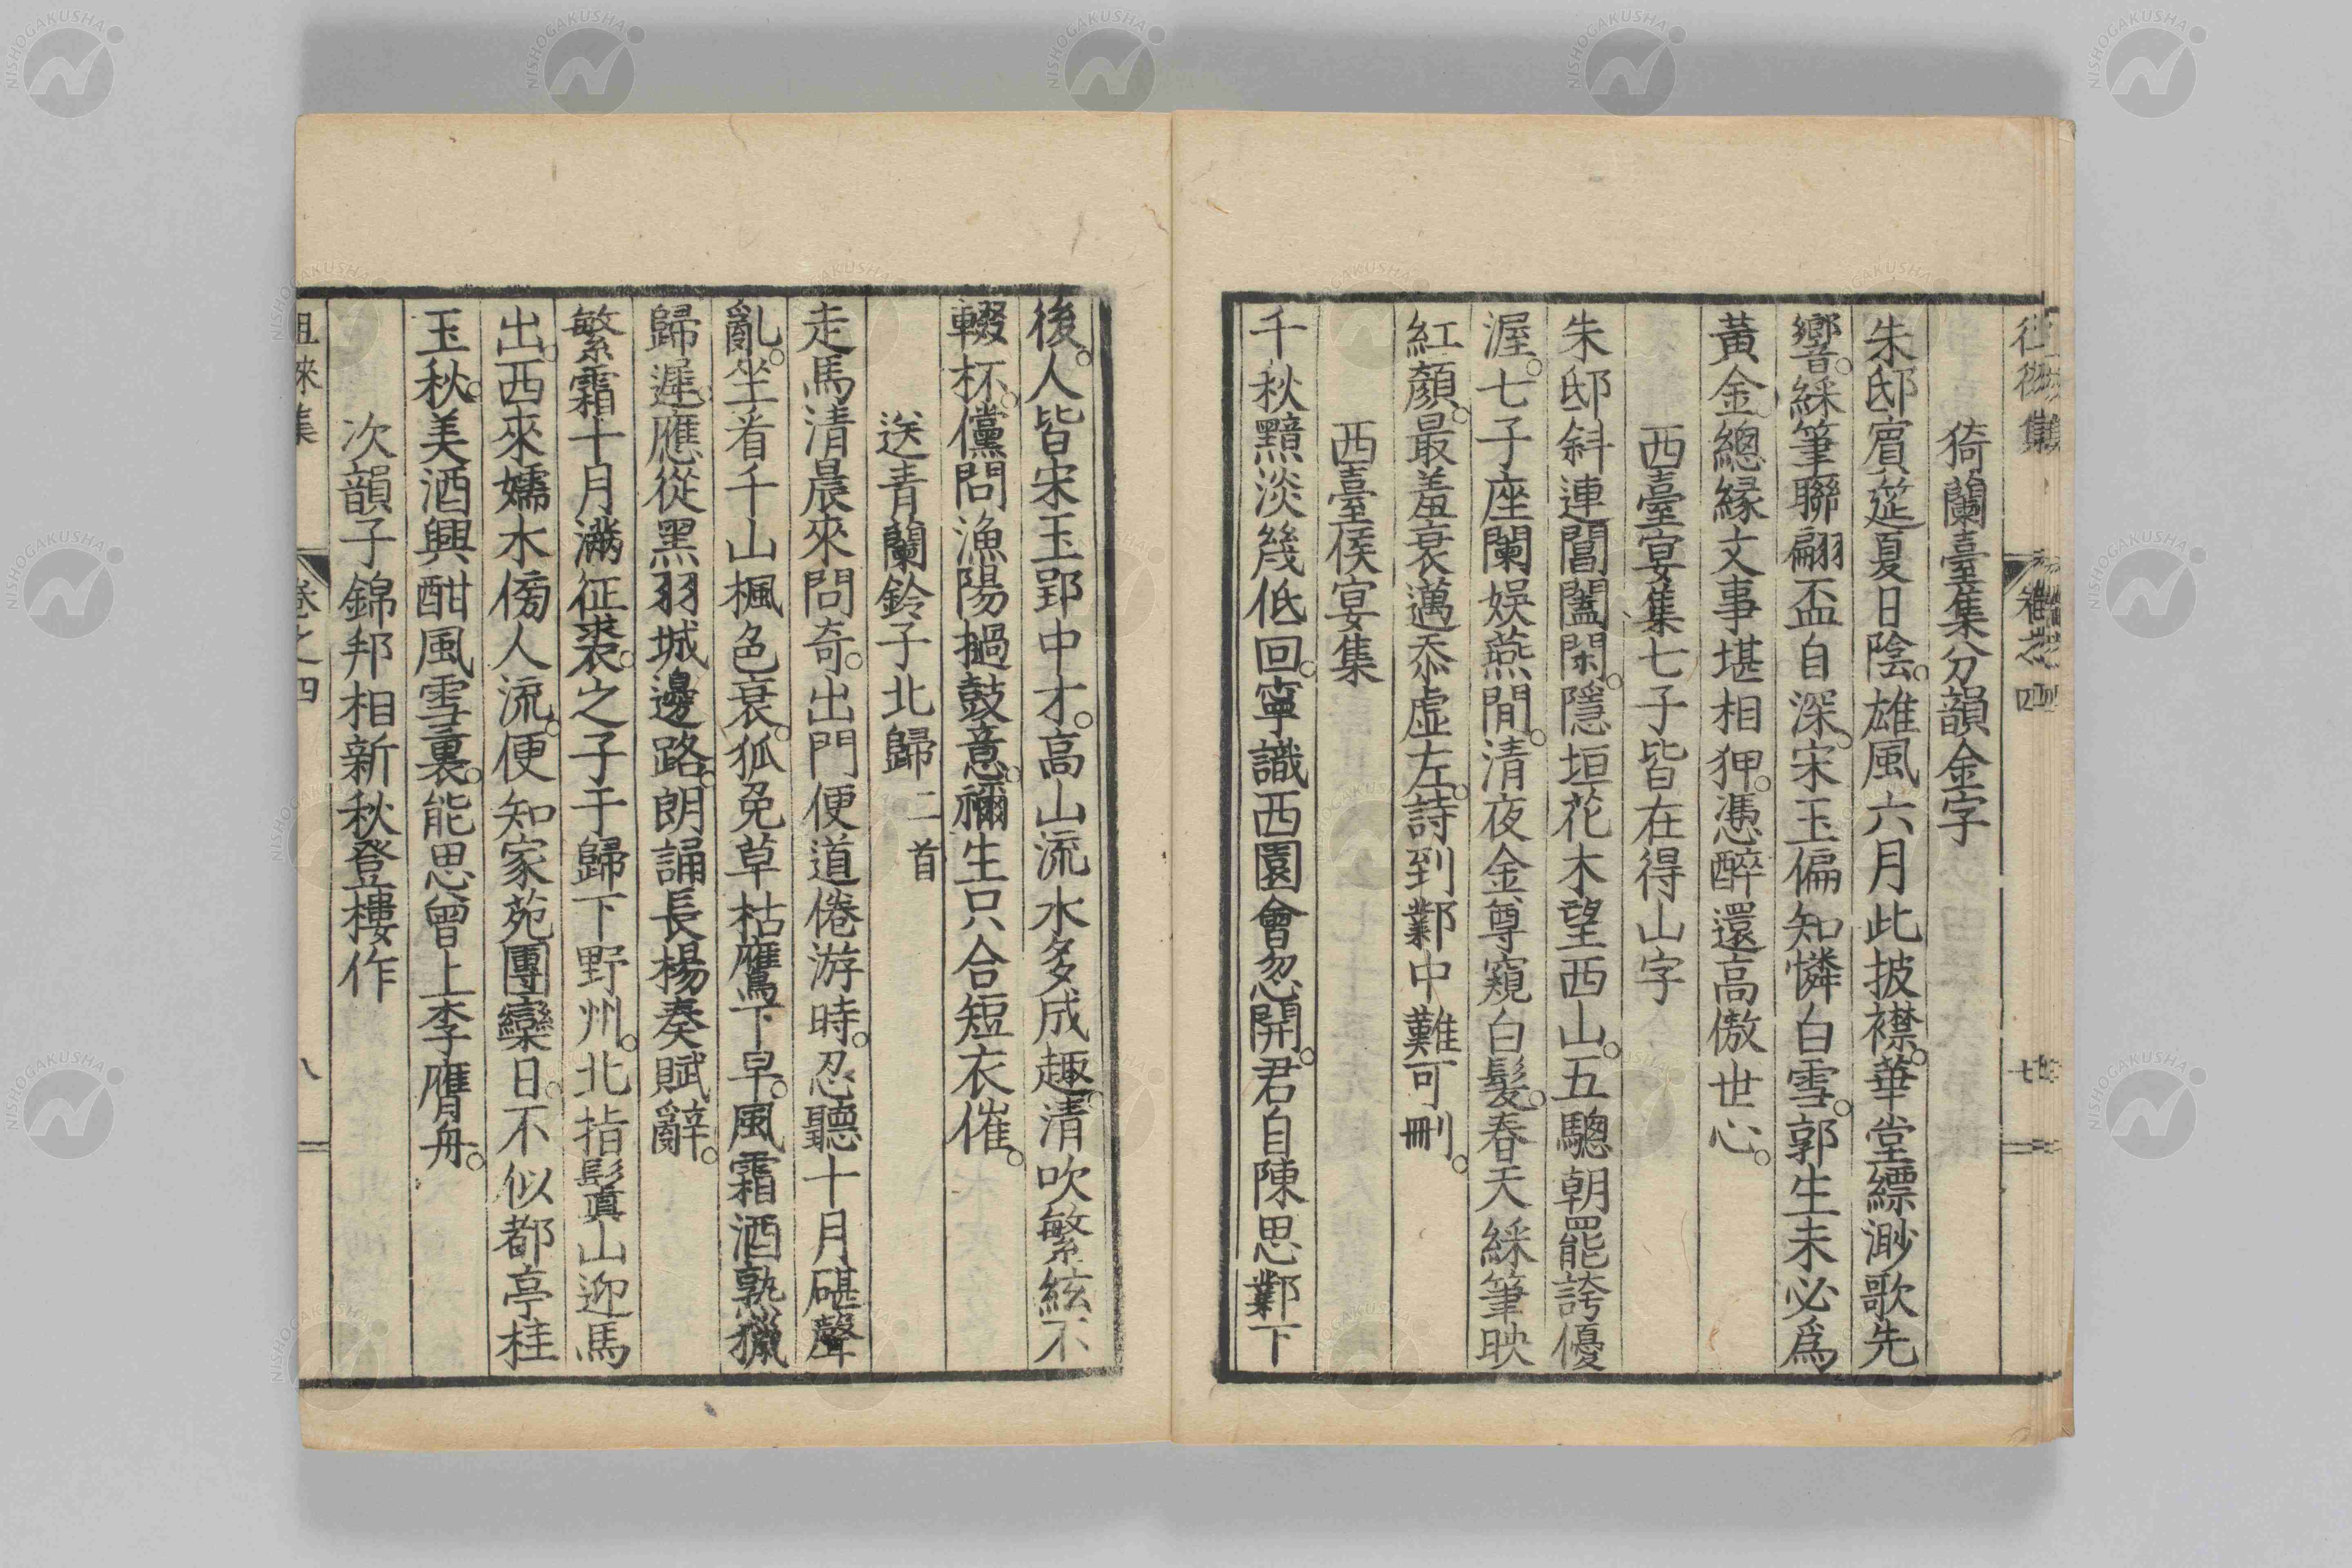 猗蘭臺集分韻金字
朱邸賓莚夏日陰。雄風六月此披襟。華堂縹渺歌先
響。綵筆聯翩盃自深。宋玉偏知憐白雪。郭生未必爲
黃金。總緣文事堪相狎。憑醉還高傲世心。
西臺宴集七子皆在得山字
朱邸斜連閶闔閑。隱垣花木望西山。五驄朝罷誇優
渥。七子座闌娛燕間。清夜金尊窺白髮。春天綵筆映
紅顏。最羞衰邁忝虛左。詩到鄴中難可刪。
西臺侯宴集
千秋黯淡幾低回。寧識西園會忽開。君自陳思鄴下
後。人皆宋玉郢中才。高山流水多成趣。清吹繁絃不
輟杯。儻問漁陽撾鼓意。禰生只合短衣催。
送青蘭鈴子北歸二首
走馬清晨來問奇。出門便道倦游時。忍聽十月碪聲
亂。坐看千山楓色衰。狐兔草枯鷹下早。風霜酒熟獵
歸遲。應從黑羽城邊路。朗誦長楊奏賦辭。
繁霜十月滿征裘。之子于歸下野州。北指鬒山迎馬
出。西來孀水傍人流。便知家苑團欒日。不似都亭桂
玉秋。美酒興酣風雪裏。能思曾上李膺舟。
次韻子錦邦相新秋登樓作
徂徠集
卷之四
八
卷之四
七
NISHOGAKUSHA